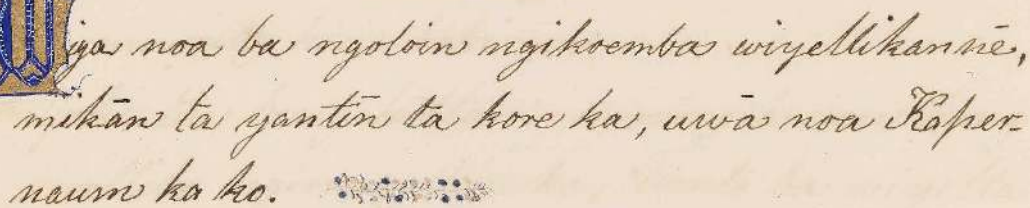 Wiya noa ba ngoloin ngikoemba wiyellikannē,
mikān ta yantīn ta kore ka, uwā noa Kaper-
naum ka ko.